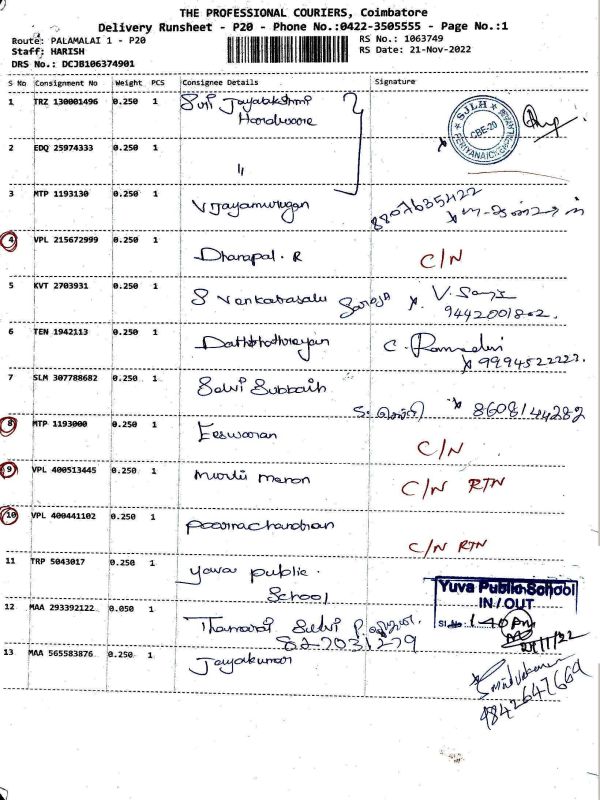 THE PROFESSIONAL COURIERS, Coimbatore
Delivery Runsheet - P20 - Phone No.:0422-3505555 - Page No.:1
Route: PALAMALAI 1 - P20
RS No.: 1063749
Staff: HARISH
RS Date: 21-Nov-2022
DRS No.: DCJB106374901
S No Consignment No Weight PCS Consignee Details Signature
1 TRZ 130001496 0.250 1 Suri Jayalakshmi
Hardware
SJLH
CBE-20
2 EDQ 25974333 0.250 1 "
3 MTP 1193130 0.250 1 Vijayamurugan 8807635422
4 VPL 215672999 0.250 1 Dhanapal. R C/N
5 KVT 2703931 0.250 1 S Venkatasalu Saroja V. Saroja
9442001802.
6 TEN 1942113 0.250 1 Dathathrayan C. Ramadevi
9994522222.
7 SLM 307788682 0.250 1 Selvi Subbaih
8608144282
8 MTP 1193000 0.250 1 Eeswaran C/N
9 VPL 400513445 0.250 1 Murli menon C/N RTN
10 VPL 400441102 0.250 1 Poornachandran
C/N RTN
11 TRP 5043017 0.250 1 yuva public.
School
Yuva Public School
IN / OUT
Sl.No: 1.40 pm
12 MAA 293392122 0.050 1 Thamarai Selvi P.
13 MAA 565583876 0.250 1 Jayakumar
9842647669